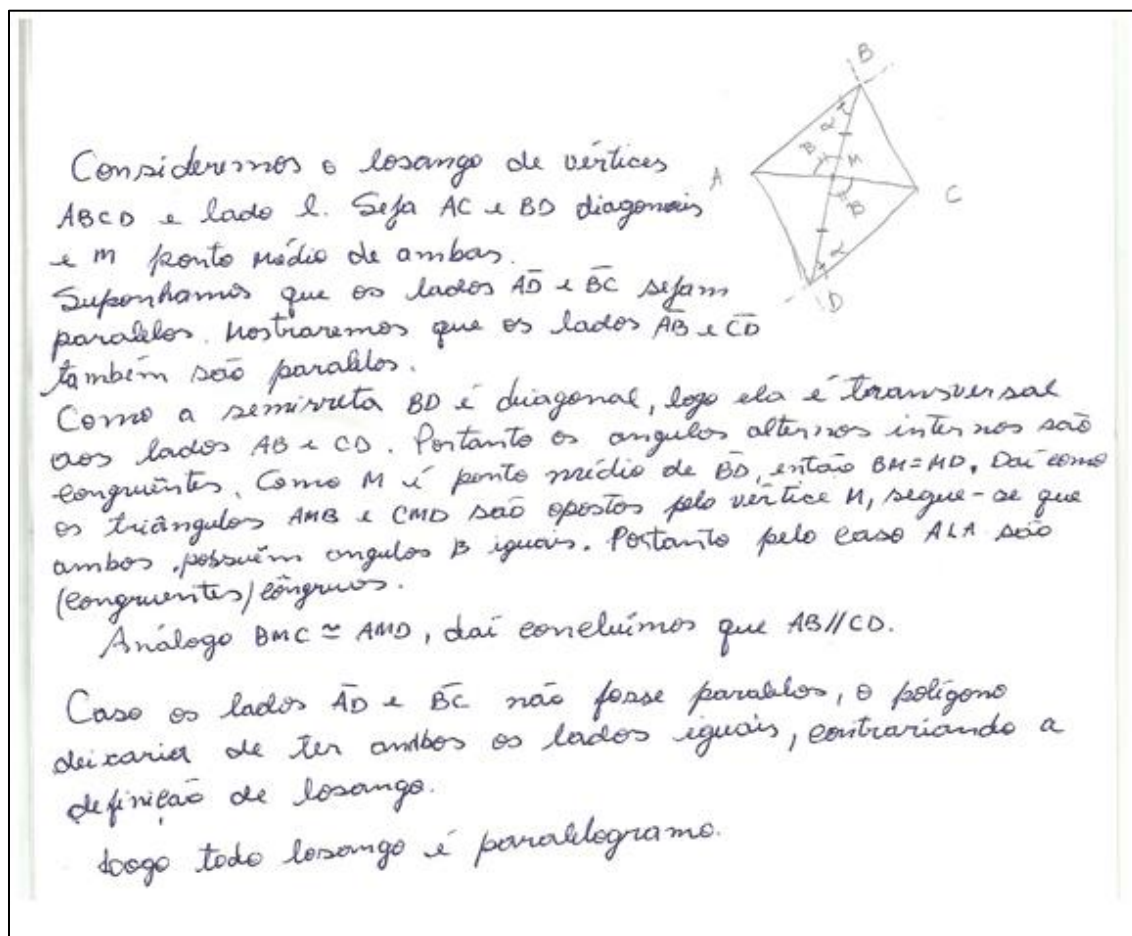 Consideremos o losango de vértices
ABCD e lado l. Seja AC e BD diagonais
e M ponto médio de ambas.
Suponhamos que os lados A̅D̅ e B̅C̅ sejam
paralelos. Mostraremos que os lados A̅B̅ e C̅D̅
também são paralelos.
Como a semirreta BD é diagonal, logo ela é transversal
aos lados AB e CD. Portanto os angulos alternos internos são
congruêntes. Como M é ponto médio de B̅D̅, então BM=MD. Daí como
os triângulos AMB e CMD são opostos pelo vértice M, segue-se que
ambos, possuêm angulos B iguais. Portanto pelo caso ALA são
(congruentes) côngruos.
Análogo BMC ≃ AMD, daí concluímos que AB//CD.
Caso os lados A̅D̅ e B̅C̅ não fosse paralelos, o polígono
deixaria de ter ambos os lados iguais, contrariando a
definição de losango.
Logo todo losango é paralelogramo.
B
α
B
M
A
C
B
α
D